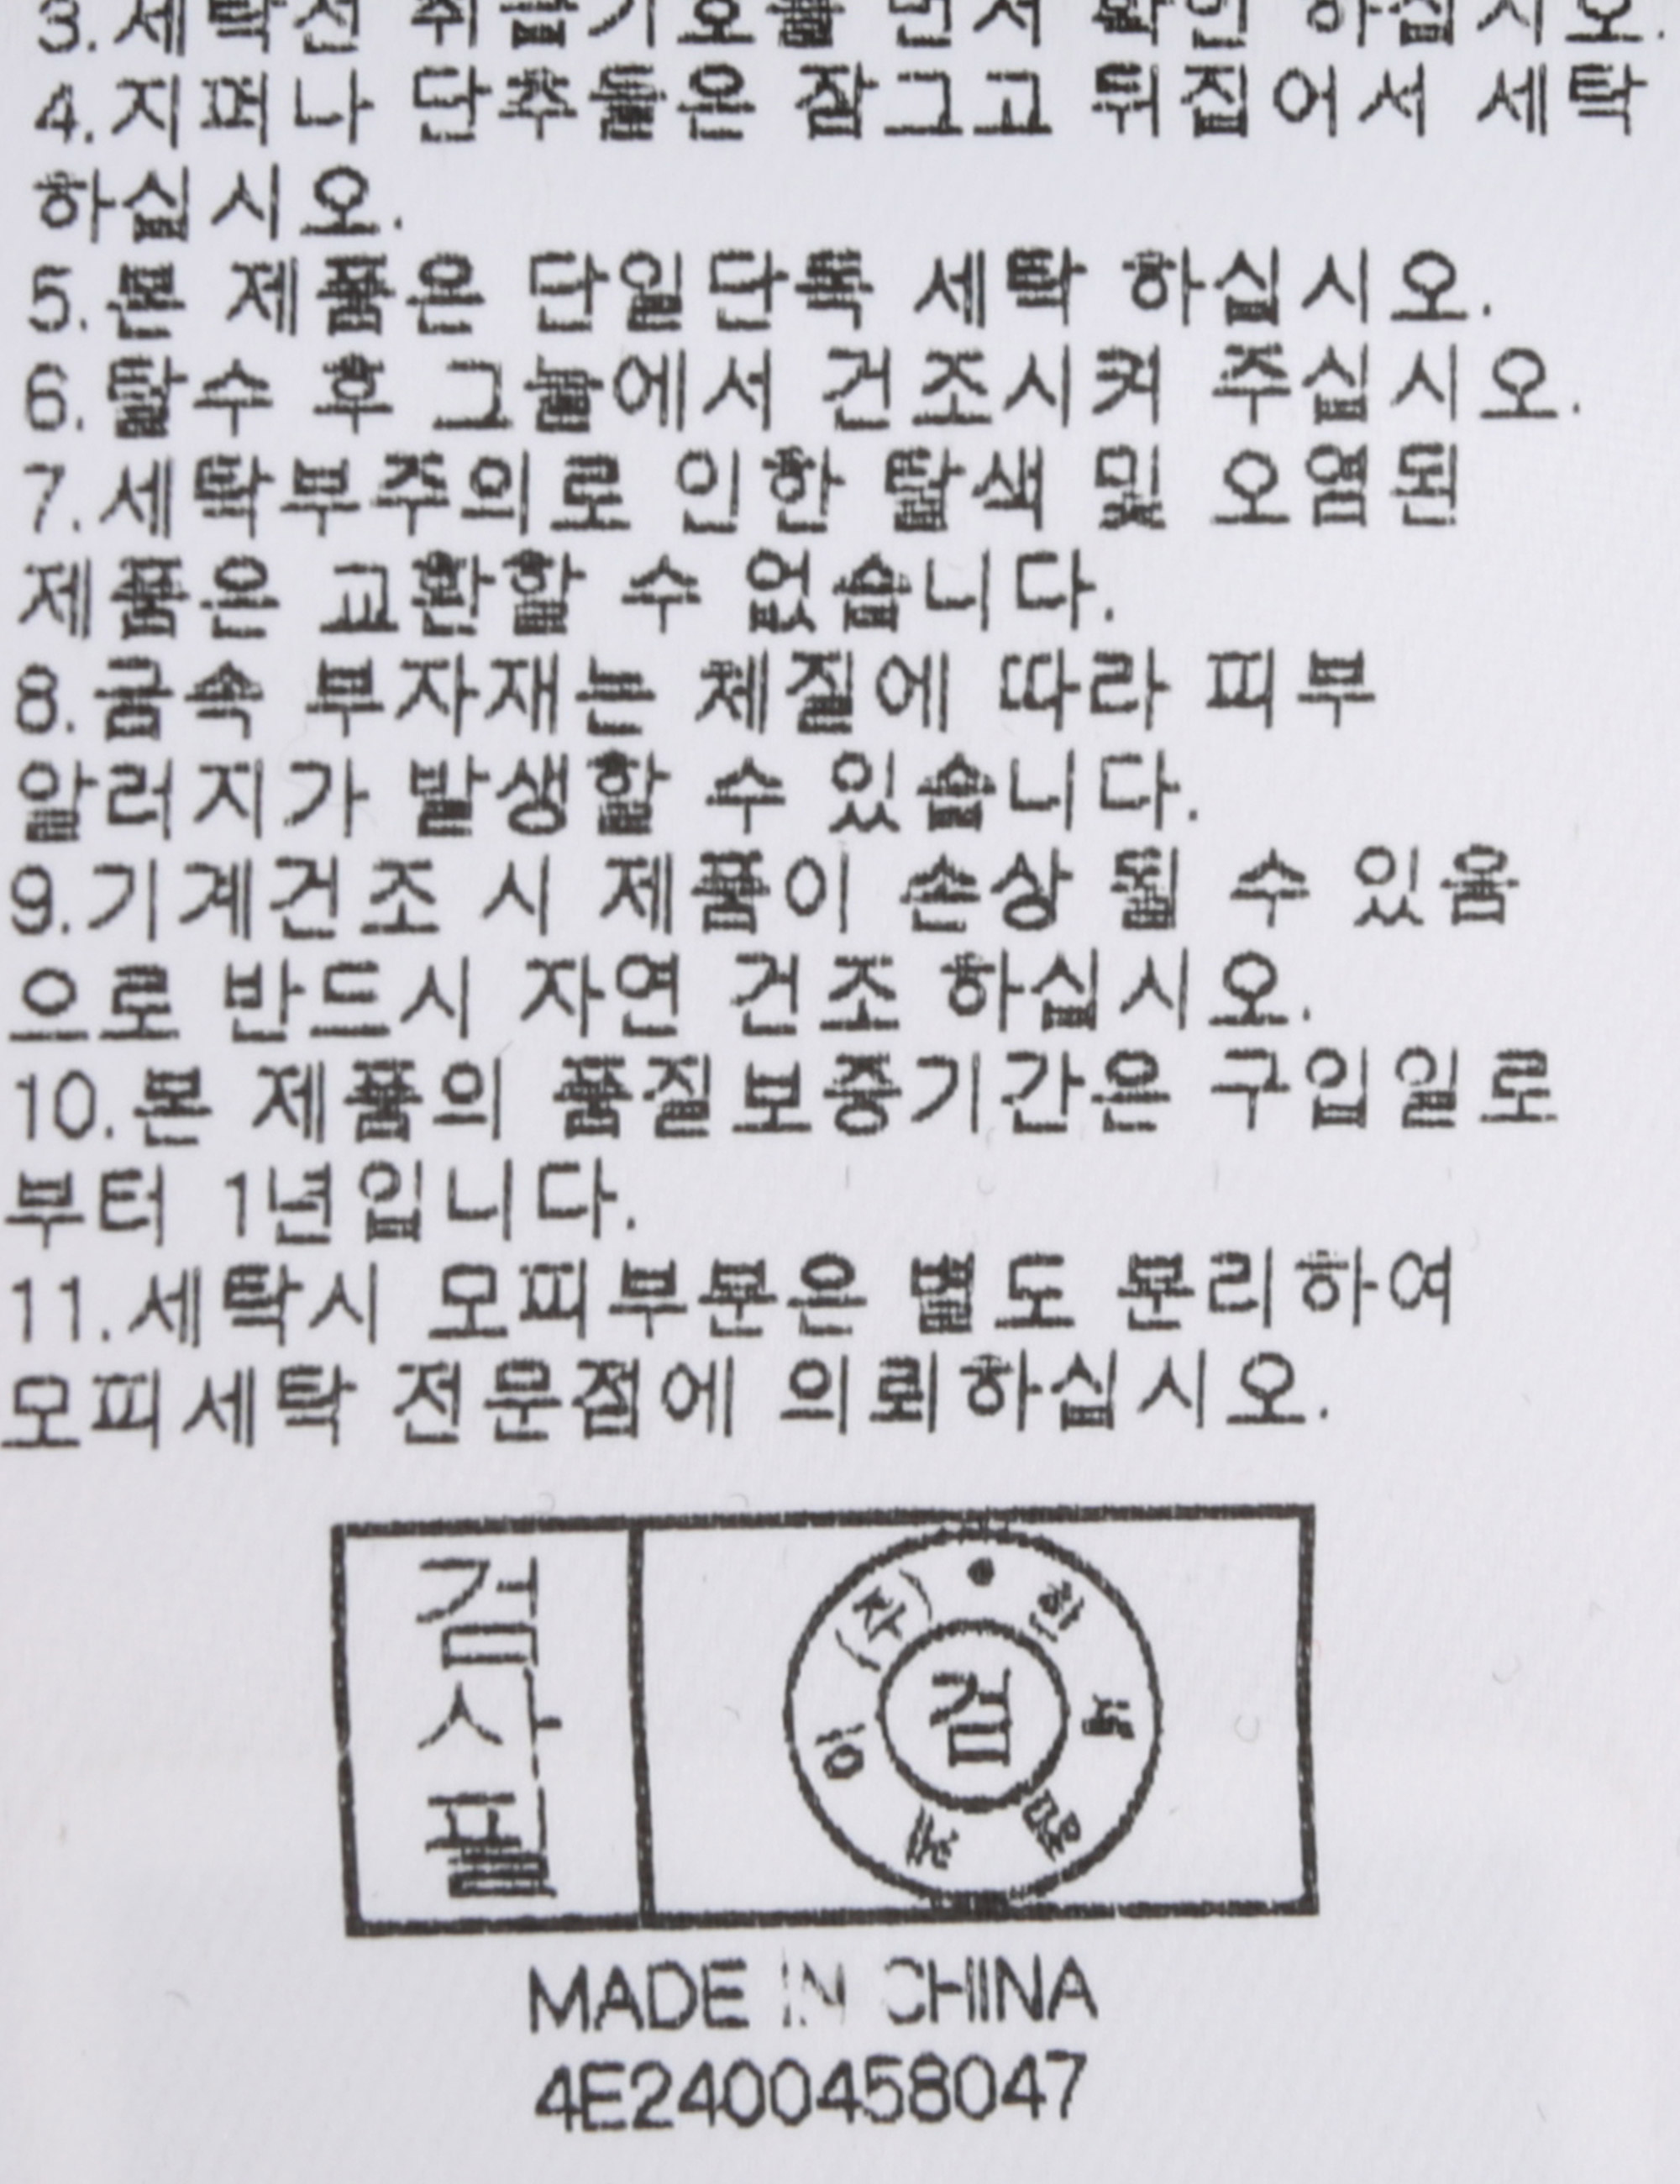 3.세탁전 취급기호를 먼저 확인 하십시오.
4.지퍼나 단추들은 잠그고 뒤집어서 세탁
하십시오.
5.본 제품은 단일단독 세탁 하십시오.
6.탈수 후 그늘에서 건조시켜 주십시오.
7.세탁부주의로 인한 탈색 및 오염된
제품은 교환할 수 없습니다.
8.금속 부자재는 체질에 따라 피부
알러지가 발생할 수 있습니다.
9.기계건조 시 제품이 손상 될 수 있음
으로 반드시 자연 건조 하십시오.
10.본 제품의 품질보증기간은 구입일로
부터 1년입니다.
11.세탁시 모피부분은 별도 분리하여
모피세탁 전문점에 의뢰하십시오.
검사필
검
MADE IN CHINA
4E2400458047